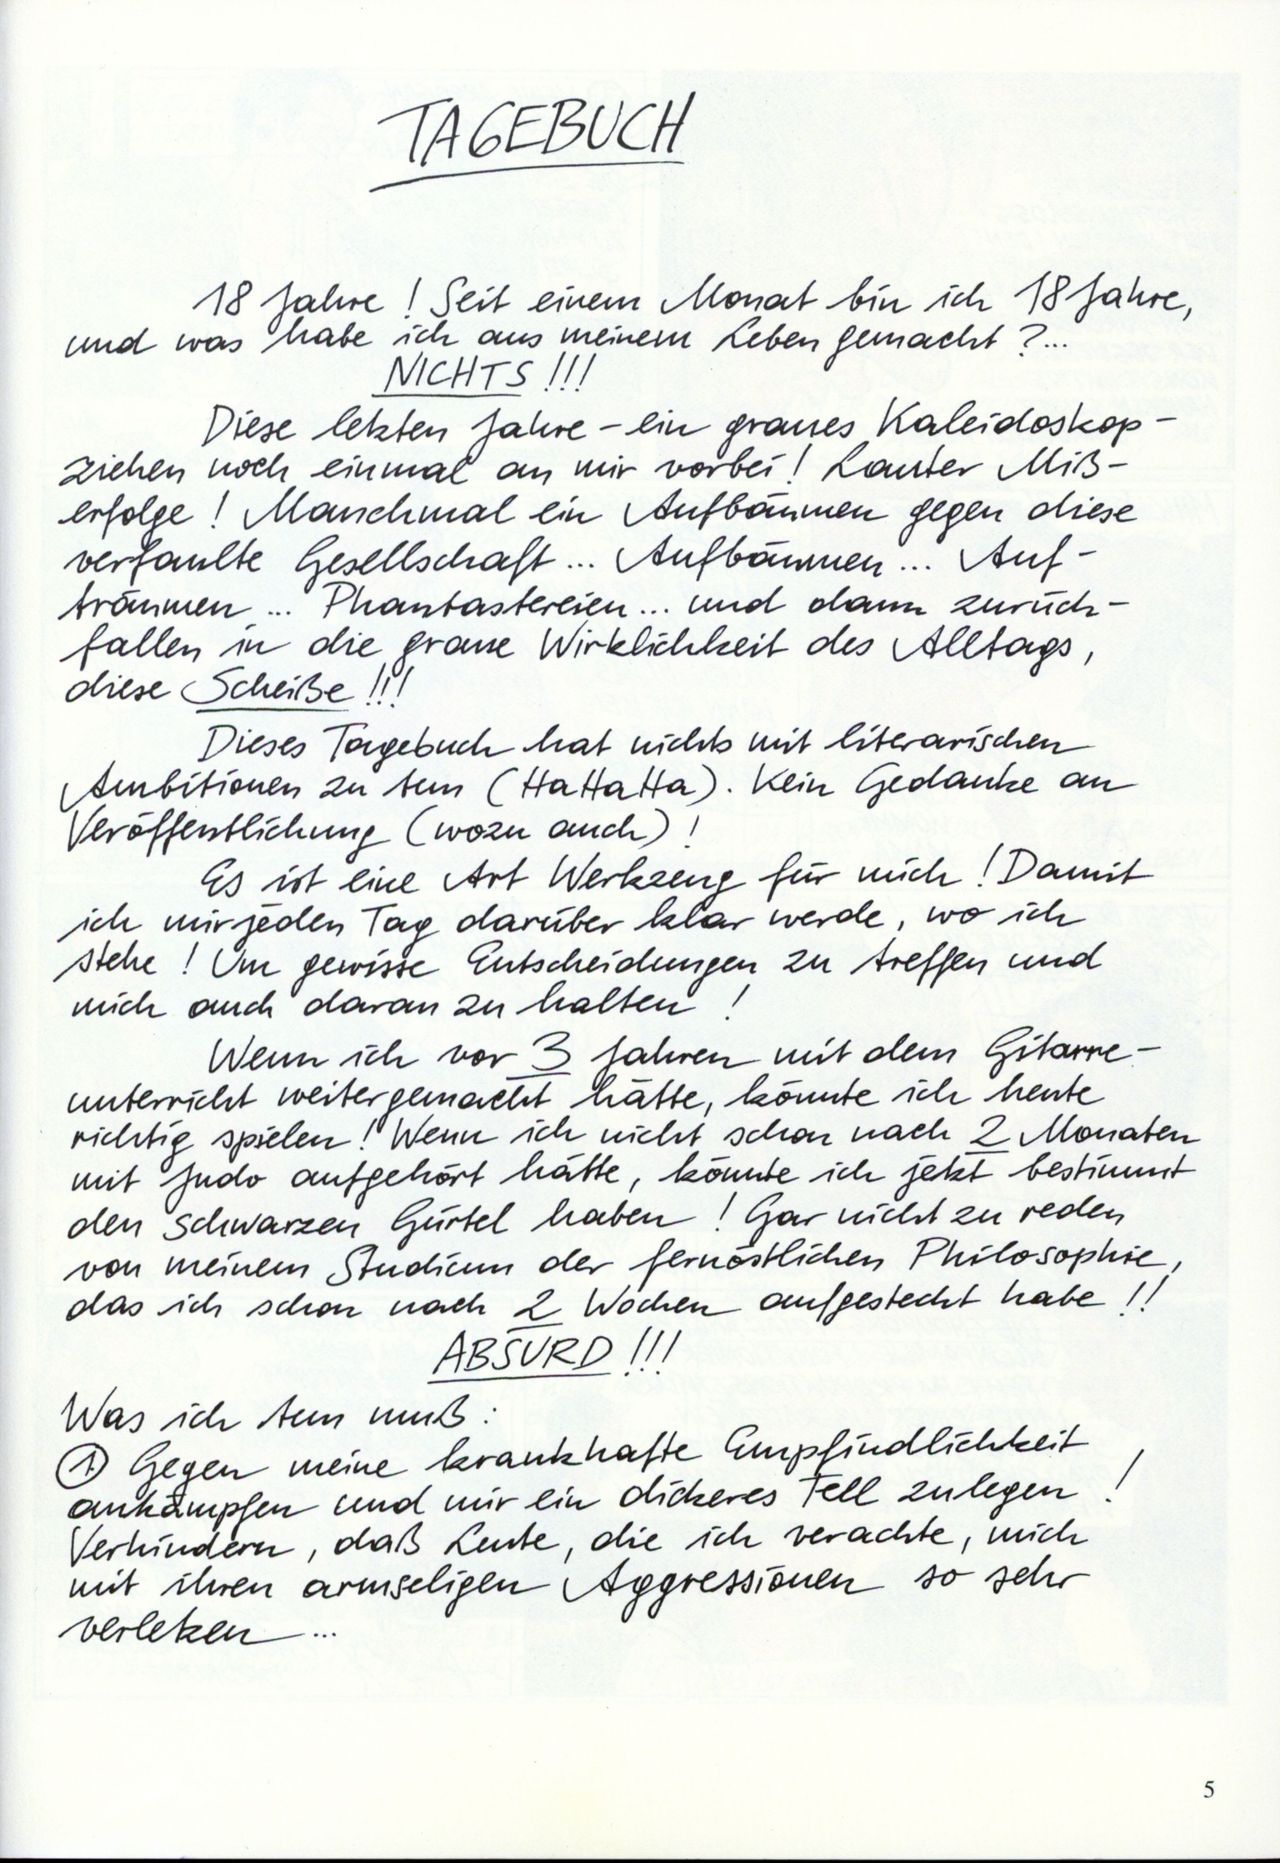 TAGEBUCH
18 Jahre ! Seit einem Monat bin ich 18 Jahre,
und was habe ich aus meinem Leben gemacht ?...
NICHTS !!!
Diese letzten Jahre – ein graues Kaleidoskop –
ziehen noch einmal an mir vorbei ! Lauter Miß-
erfolge ! Manchmal ein Aufbäumen gegen diese
verfaulte Gesellschaft ... Aufbäumen ... Auf-
träumen ... Phantastereien ... und dann zurück-
fallen in die graue Wirklichkeit des Alltags,
diese Scheiße !!!
Dieses Tagebuch hat nichts mit literarischen
Ambitionen zu tun (HaHaHa). Kein Gedanke an
Veröffentlichung (wozu auch) !
Es ist eine Art Werkzeug für mich ! Damit
ich mir jeden Tag darüber klar werde, wo ich
stehe ! Um gewisse Entscheidungen zu treffen und
mich auch daran zu halten !
Wenn ich vor 3 Jahren mit dem Gitarre-
unterricht weitergemacht hätte, könnte ich heute
richtig spielen ! Wenn ich nicht schon nach 2 Monaten
mit Judo aufgehört hätte, könnte ich jetzt bestimmt
den schwarzen Gürtel haben ! Gar nicht zu reden
von meinem Studium der fernöstlichen Philosophie,
das ich schon nach 2 Wochen aufgesteckt habe !!
ABSURD !!!
Was ich tun muß :
① Gegen meine krankhafte Empfindlichkeit
ankämpfen und mir ein dickeres Fell zulegen !
Verhindern, daß Leute, die ich verachte, mich
mit ihren armseligen Aggressionen so sehr
verletzen ...
5